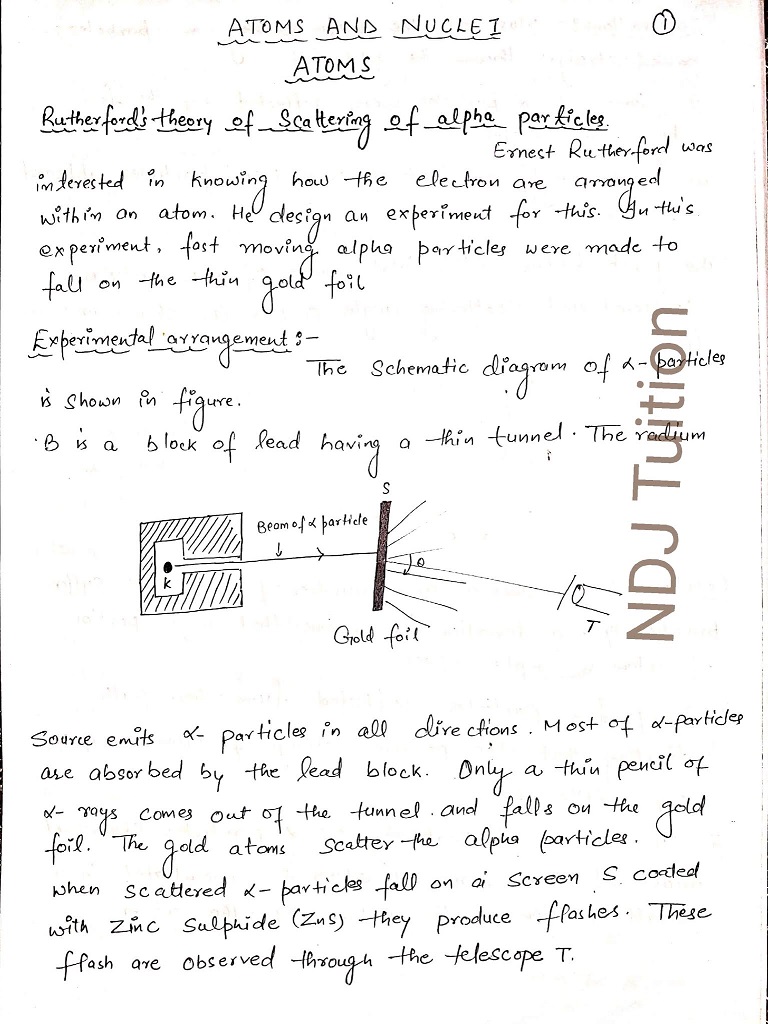 ATOMS AND NUCLEI
①
ATOMS
Rutherford's theory of Scattering of alpha particles.
Ernest Rutherford was
interested in knowing how the electron are arranged
within an atom. He design an experiment for this. In this
experiment, fast moving alpha particles were made to
fall on the thin gold foil
Experimental arrangement :-
The Schematic diagram of α- particles
is shown in figure.
B is a block of lead having a thin tunnel. The radium
S
Beam of α particle
θ
K
T
Gold foil
NDJ Tuition
Source emits α- particles in all directions. Most of α-particles
are absorbed by the lead block. Only a thin pencil of
α- rays comes out of the tunnel. and falls on the gold
foil. The gold atoms scatter the alpha particles.
when scattered α- particles fall on a screen S coated
with Zinc Sulphide (ZnS) they produce flashes. These
flash are observed through the telescope T.